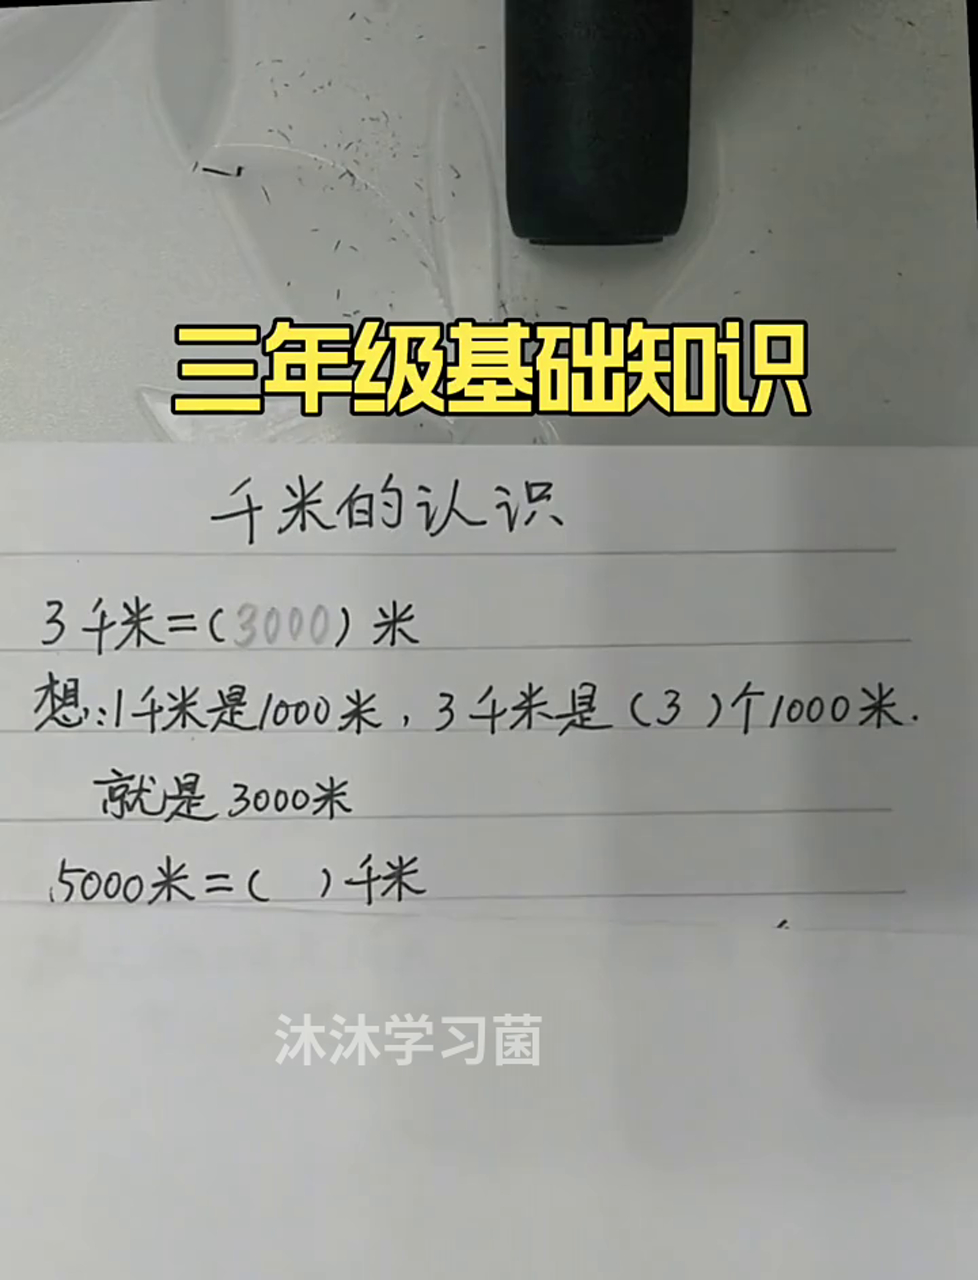 三年级基础知识
千米的认识
3千米=(3000)米
想:1千米是1000米,3千米是(3)个1000米.
就是3000米
5000米=( )千米
沐沐学习菌